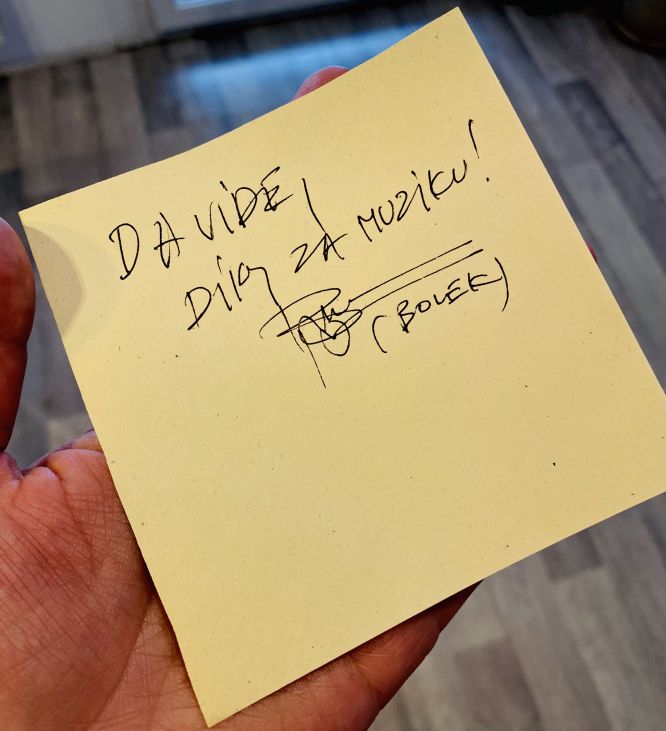 DAVIDE,
DÍKY ZA MUZIKU!
(BOLEK)